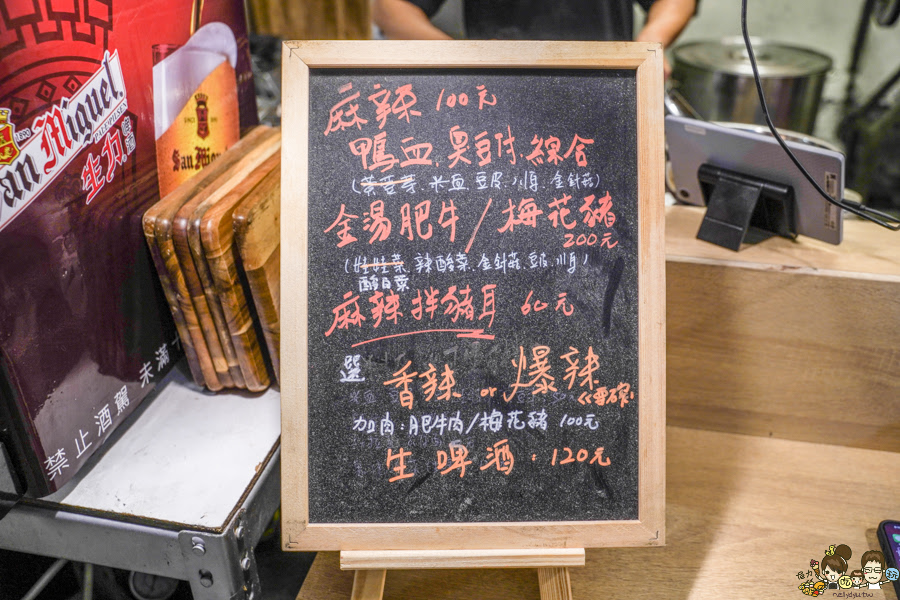 麻辣 100元
鴨血.臭豆付.綜合
(茶壹芽、米血、豆皮、川耳、金針菇)
金湯肥牛/梅花豬
200元
(娃娃菜、辣酸菜、金針菇、豆皮、川耳)
酸白菜
麻辣拌豬耳 60元
選 香辣 or 爆辣
加肉:肥牛肉/梅花豬 100元
生啤酒.120元
San Miguel
PALE PILSEN
生力
啤酒
San Mig
禁止酒駕 未滿十
nellydyu.tw